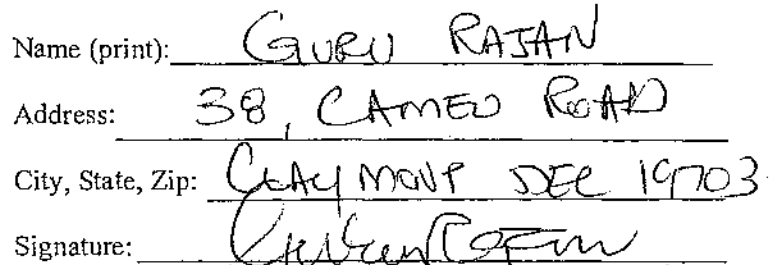 Name (print): GURU RAJAN
Address: 38, CAMEO ROAD
City, State, Zip: CLAYMONT DEL 19703
Signature: